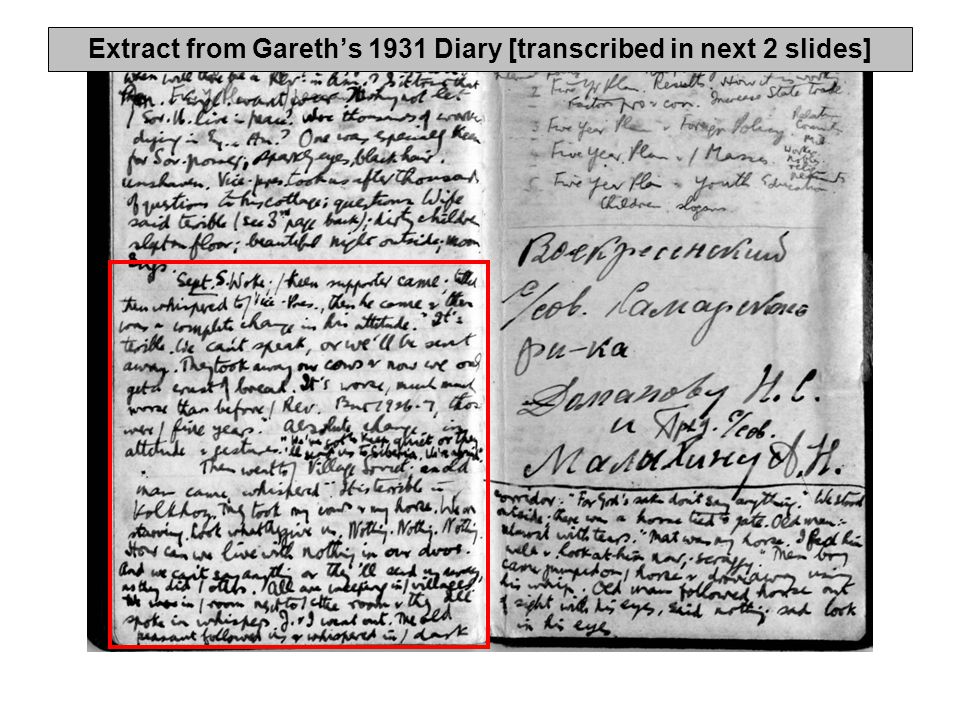 Extract from Gareth's 1931 Diary [transcribed in next 2 slides]
When will there be a Rev. in
want war
Sov. U. live in peace? Were thousands of workers
dying in Eng., Am.? One was especially keen
for Sov. power; sparkly eyes, black hair.
unshaven. Vice-pres. took us after thousands
of questions to his cottage; questions Wife
said terrible (see 3rd page back); dirty children
slept on floor; beautiful night outside; moon
Bugs.
Sept. 5. Woke. / keen supporter came.
then whispered to / Vice-Pres., then he came & then
was a complete change in his attitude. "It's
terrible. We can't speak, or we'll be sent
away. They took away our cows & now we only
get a crust of bread. It's worse, much much
worse than before / Rev. But 1926-7, those
were / fine years." Absolute change in
attitude & gestures. "We've got to keep quiet or they
'll send us to Siberia,
Then went to / Village Soviet. an old
man came, whispered "It is terrible in
Kolkhoz. They took my cows & my horse. We are
starving. Look what they give us. Nothing. Nothing. Nothing.
How can we live with nothing in our dvor.
And we can't say anything or they'll send us away,
as they did / others. All are weeping in / villages,
We were in / room next to / other room & they all
spoke in whispers. J. & I went out. The old
peasant followed us & whispered in / dark
2 Five Yr Plan. Results. How it is working
Factors pro & con. Increase State trade
3 Five Year Plan & Foreign Policy.
4 Five Year Plan & / Masses.
5 Five Year Plan & Youth Education
Children slogans.
Relation
Workers
Воскресенский
с/сов. Самарского
ри-ка
Потапову Н. С.
и Пред. с/сов.
Малахину А. Н.
corridor. "For God's sake don't say anything." We stood
outside; there was a horse tied to gate. Old man:-
almost with tears. "That was my horse. I fed him
well & look at him now, scraggy." Then boy
came, jumped on / horse & drove away using
his whip. Old man followed horse out
of sight with his eyes, said nothing sad look
in his eyes.